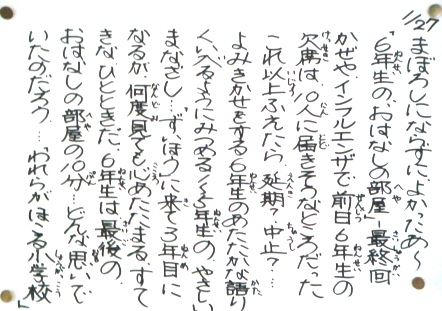 1/27
まぼろしにならずによかったあ～
“6年生の、おはなしの部屋-最終回”
かぜやインフルエンザで前日6年生の
欠席は、10人に届きそうなところだった
これ以上ふえたら、延期？中止？…
よみきかせをする6年生のあたたかな語り
くいいるようにみつめる1～5年生の、やさしい
まなざし…“ず、ほうに来て3年目に
なるが、何度見ても心あたたまる、すて
きなひとときだ。6年生は最後の、
おはなしの部屋の10分…どんな思いで
いたのだろう…、“われらがほこる小学校”